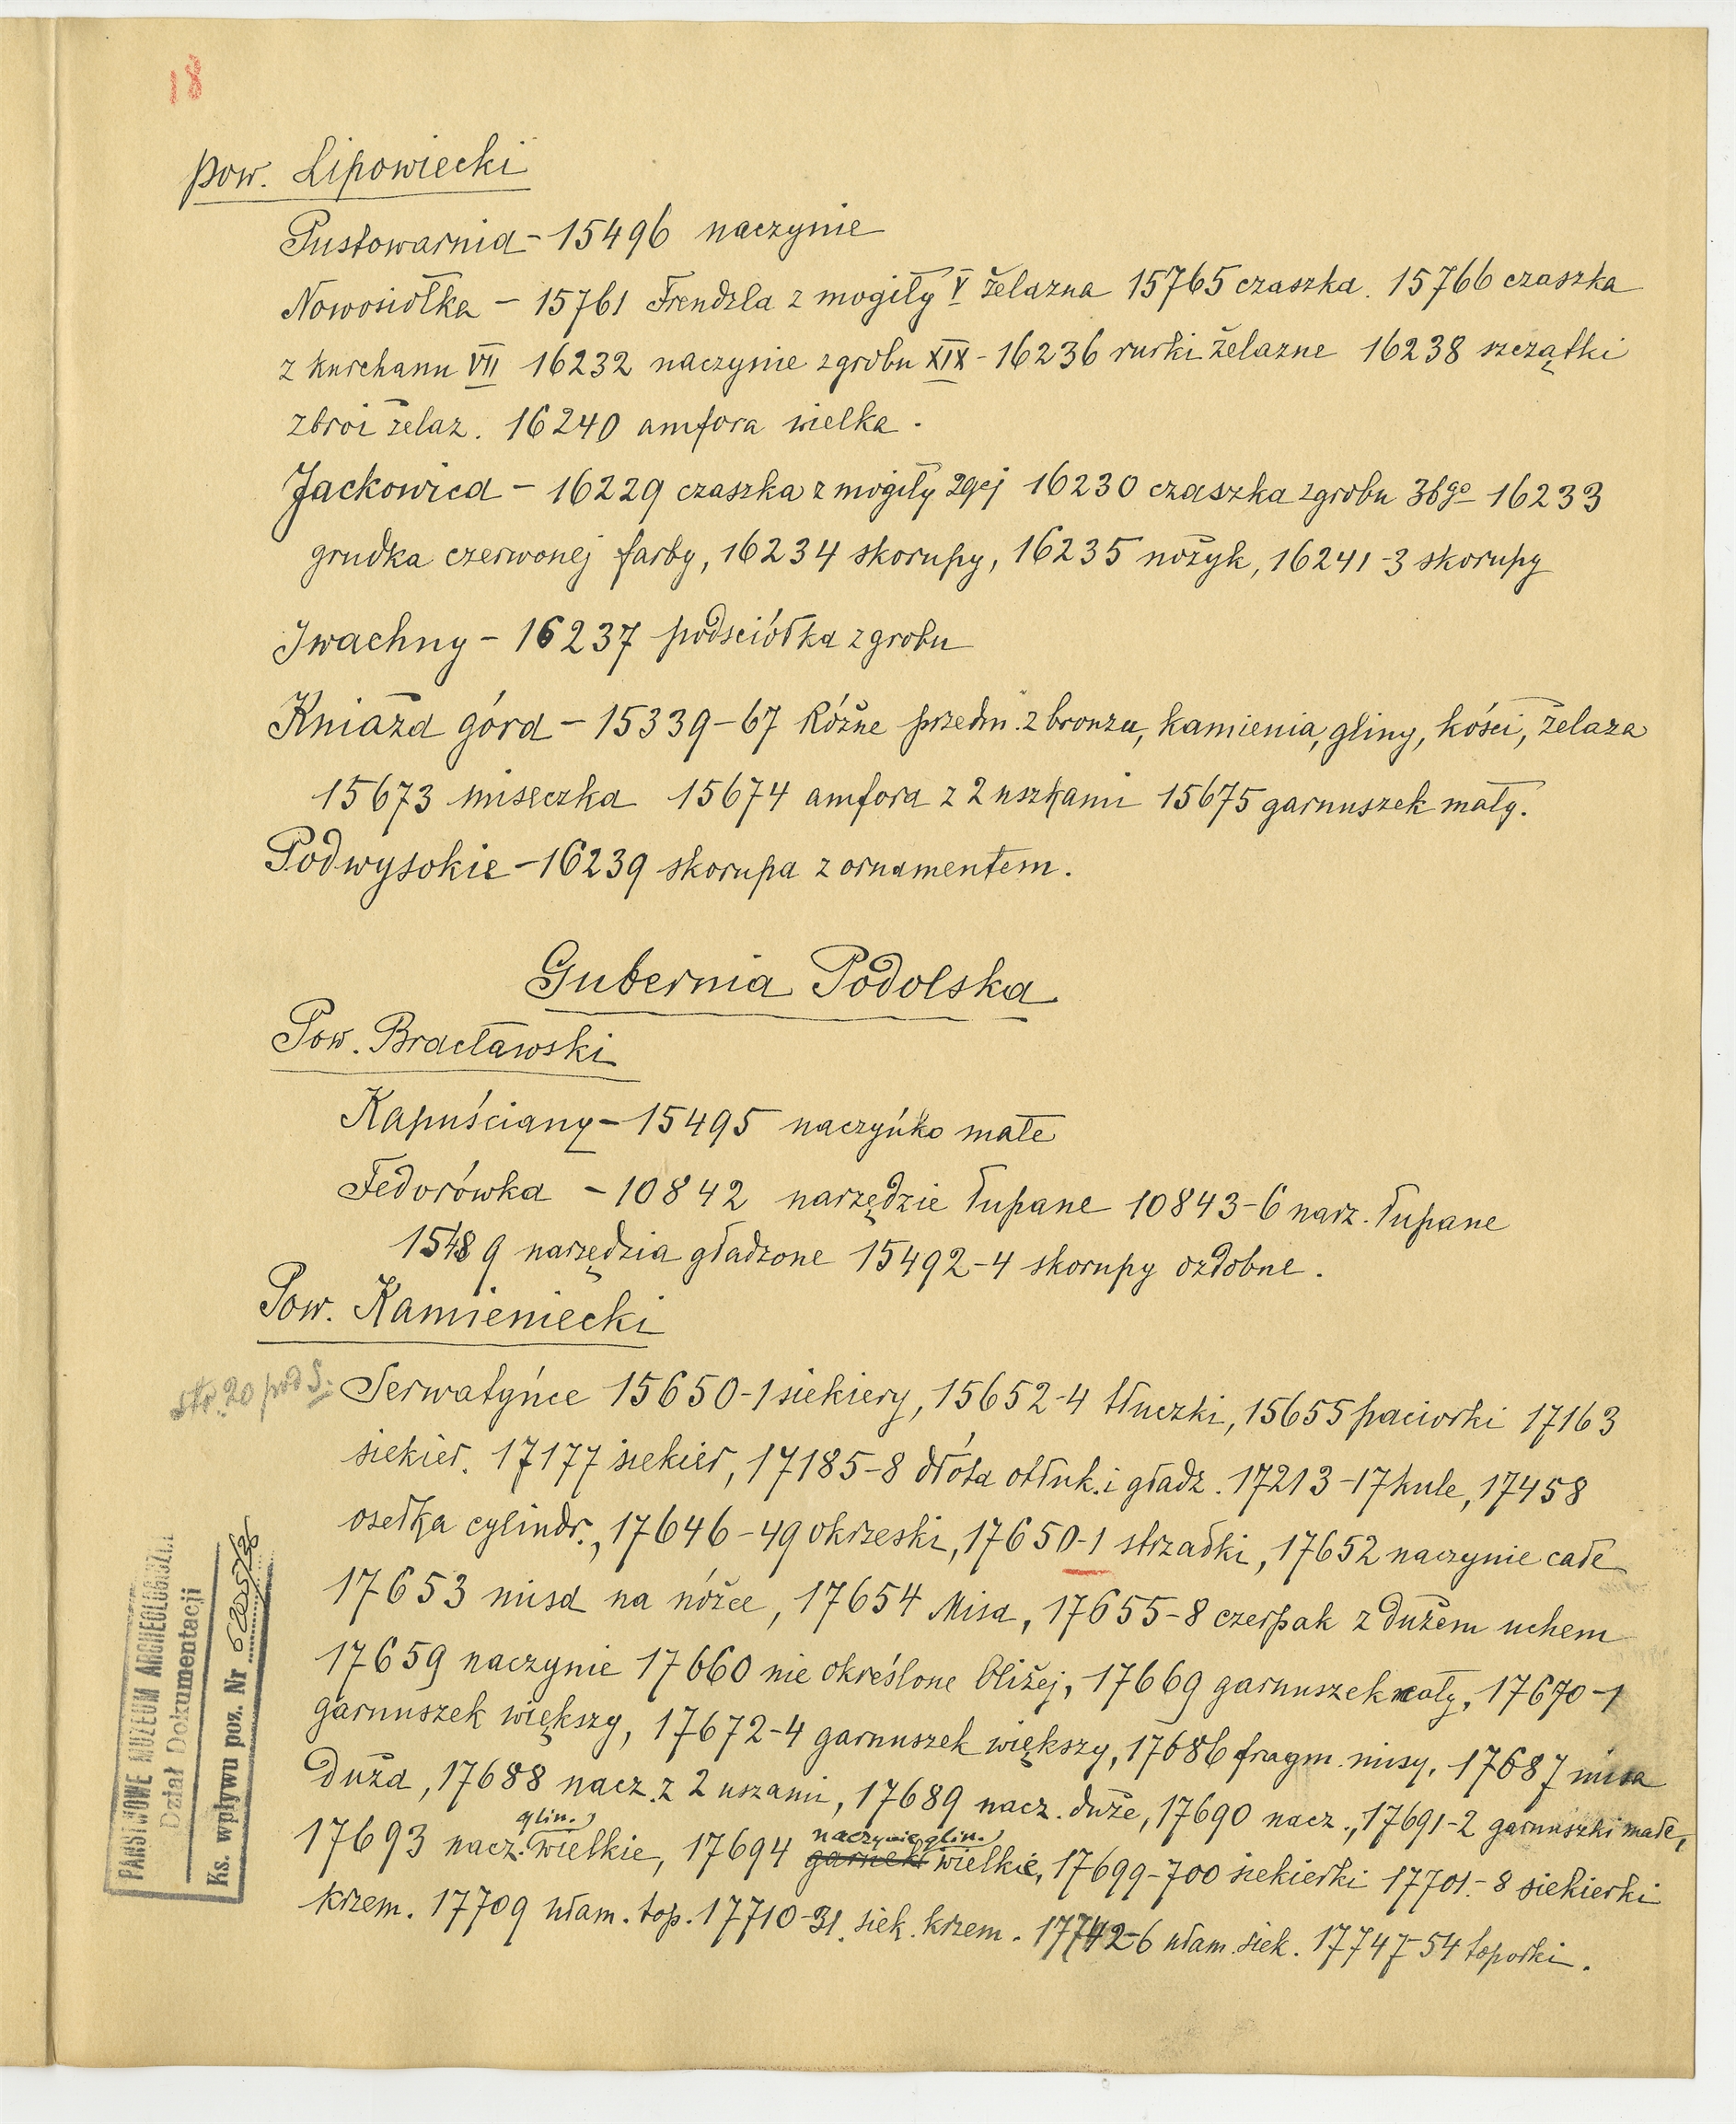 18
pow. Lipowiecki
Pustowarnia - 15496 naczynie
Nowosiółka - 15761 Frendzla z mogiły V żelazna 15765 czaszka. 15766 czaszka
z kurchanu VII 16232 naczynie z grobu XIX - 16236 rurki żelazne 16238 szczątki
zbroi żelaz. 16240 amfora wielka.
Jackowica - 16229 czaszka z mogiły 29ej 16230 czaszka z grobu 36go 16233
grudka czerwonej farby, 16234 skorupy, 16235 nożyk, 16241-3 skorupy
Iwachny - 16237 podściółka z grobu
Kniaża góra - 15339-67 Różne przedm. z bronzu, kamienia, gliny, kości, żelaza
15673 miseczka 15674 amfora z 2 uszkami 15675 garnuszek mały.
Podwysokie - 16239 skorupa z ornamentem.
Gubernia Podolska
Pow. Bracławski
Kapuściany - 15495 naczyńko małe
Fedorówka - 10842 narzędzie łupane 10843-6 narz. łupane
15489 narzędzia gładzone 15492-4 skorupy ozdobne.
Pow. Kamieniecki
str. 20 pod S.
Serwatyńce 15650-1 siekiery, 15652-4 tłuczki, 15655 paciorki 17163
siekier. 17177 siekier, 17185-8 dłóta otłuk. i gładz. 17213-17 kule, 17458
osełka cylindr., 17646-49 okrzeski, 17650-1 strzałki, 17652 naczynie całe
17653 misa na nóżce, 17654 Misa, 17655-8 czerpak z dużem uchem
17659 naczynie 17660 nie określone bliżej, 17669 garnuszek cały, 17670-1
garnuszek większy, 17672-4 garnuszek większy, 17686 fragm. misy, 17687 misa
duża, 17688 nacz. z 2 uszami, 17689 nacz. duże, 17690 nacz., 17691-2 garnuszki małe,
glin. naczynie glin.
17693 nacz. wielkie, 17694 garnek wielkie, 17699-700 siekierki 17701-8 siekierki
krzem. 17709 ułam. top. 17710-31 siek. krzem. 17742-6 ułam. siek. 17747-54 toporki.
PAŃSTWOWE MUZEUM ARCHEOLOGICZNE
Dział Dokumentacji
Ks. wpływu poz. Nr